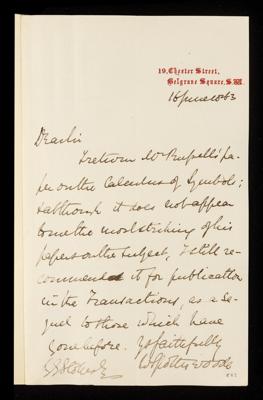 19, Chester Street,
Belgrave Square, S.W.
16 June 1863
Dear Sir
I return Mr Russell's pa-
per on the Calculus of Symbols;
& although it does not appear
to me the most striking of his
papers on the subject, I still re-
commend it for publication
in the Transactions, as a se-
quel to those which have
gone before. Yrs faithfully
G G Stokes Esq W Spottiswoode